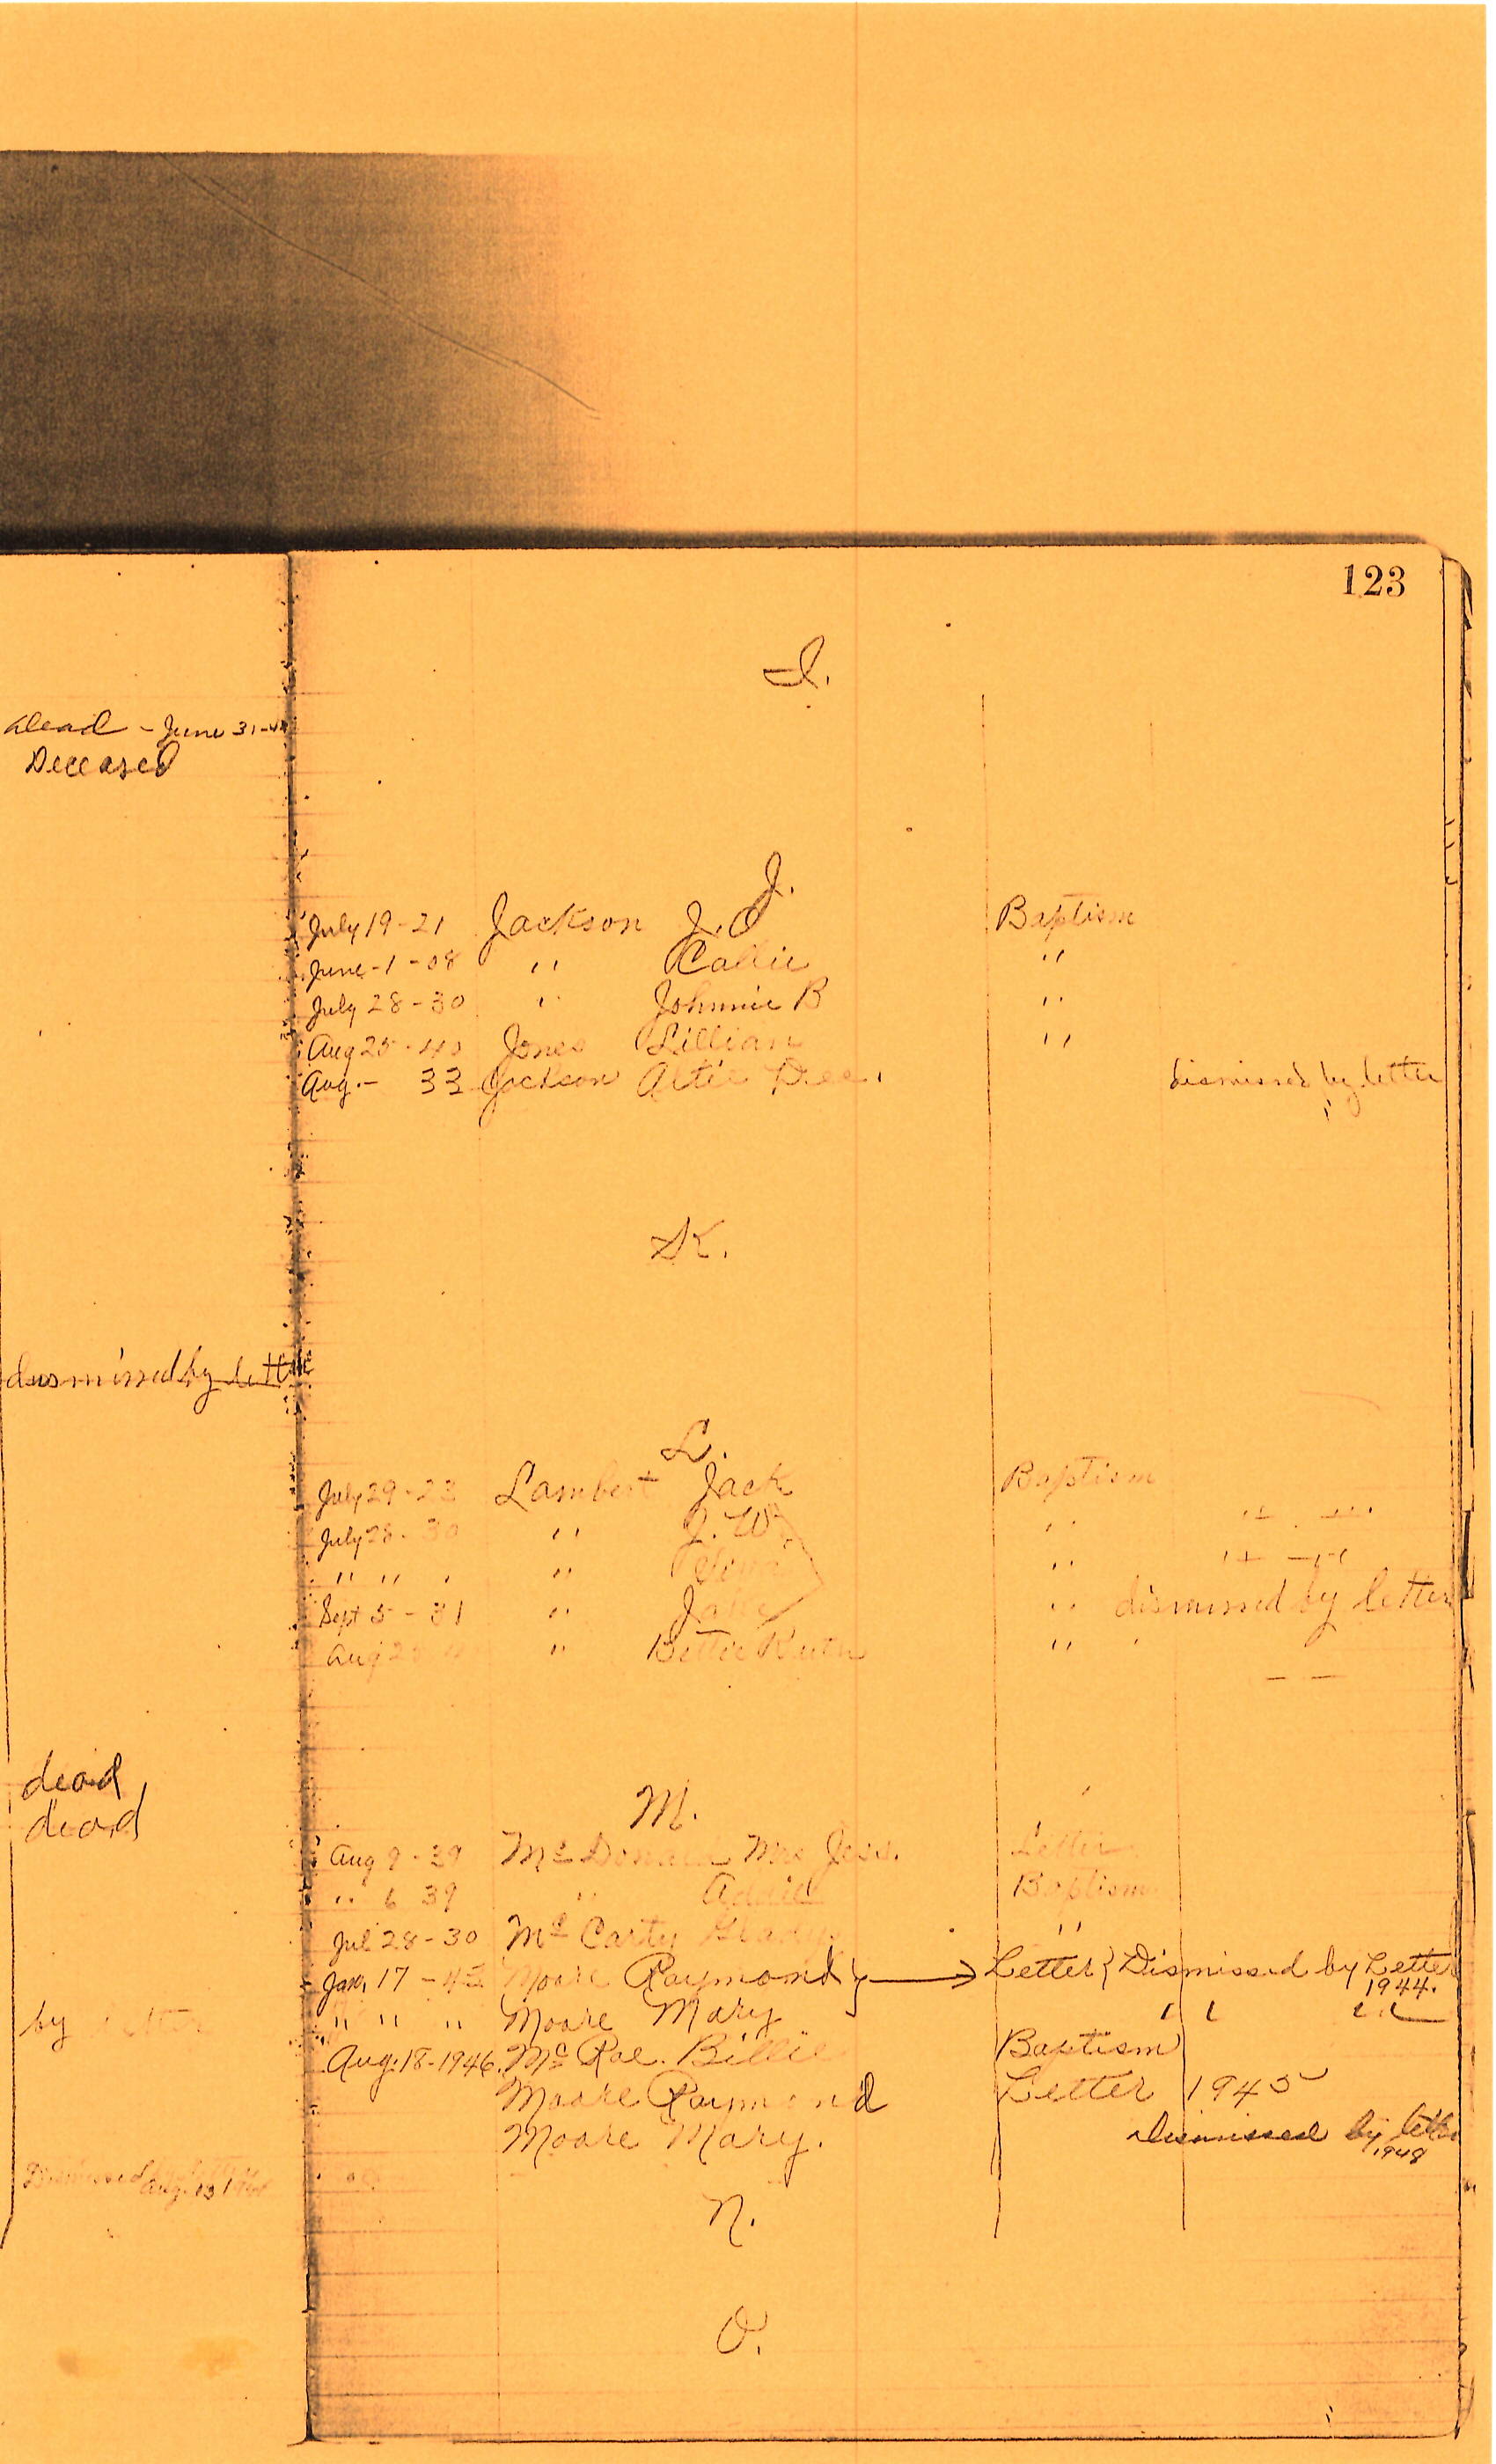 123
I.
dead - June 31-4
Deceased
J.
July 19-21 Jackson J. O Baptism
June-1-08 " Callie "
July 28-30 " Johnnie B "
Aug 25-40 Jones Lillian "
Aug.- 33 Jackson Altie Dee. dismissed by letter
"
K.
dismissed by lett
L.
July 29-23 Lambert Jack Baptism
July 28-30 " J. W. " " "
" " " " " " "
Sept 5-31 " Jane " dismissed by letter
Aug " Bettie Ruth "
dead
dead
M.
Aug 9-39 Mc Donald Mrs Jess. Letter
" 6 39 " Addie Baptism
Jul 28-30 Mc Carty Gladys "
Jan, 17-43 Moore Raymond } → Letter } Dismissed by Letter
1944.
" " " Moore Mary " "
by letter
Aug. 18-1946. Mc Rae. Billie Baptism
Moore Raymond Letter 1945
Moore Mary. Dismissed by letter
1948
Dismissed Aug. 13
N.
O.